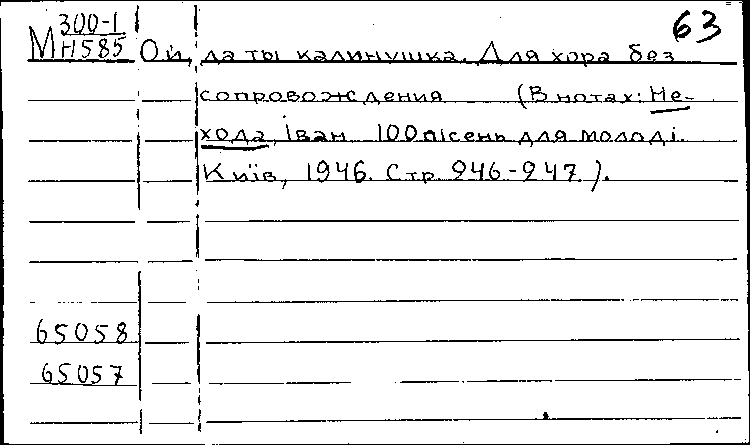 63
М 300-1
Н585 Ой, да ты калинушка. Для хора без
сопровождения (В нотах: Не-
хода, Іван 100 пісень для молоді.
Київ, 1946. Стр. 246-247.).
65058
65057